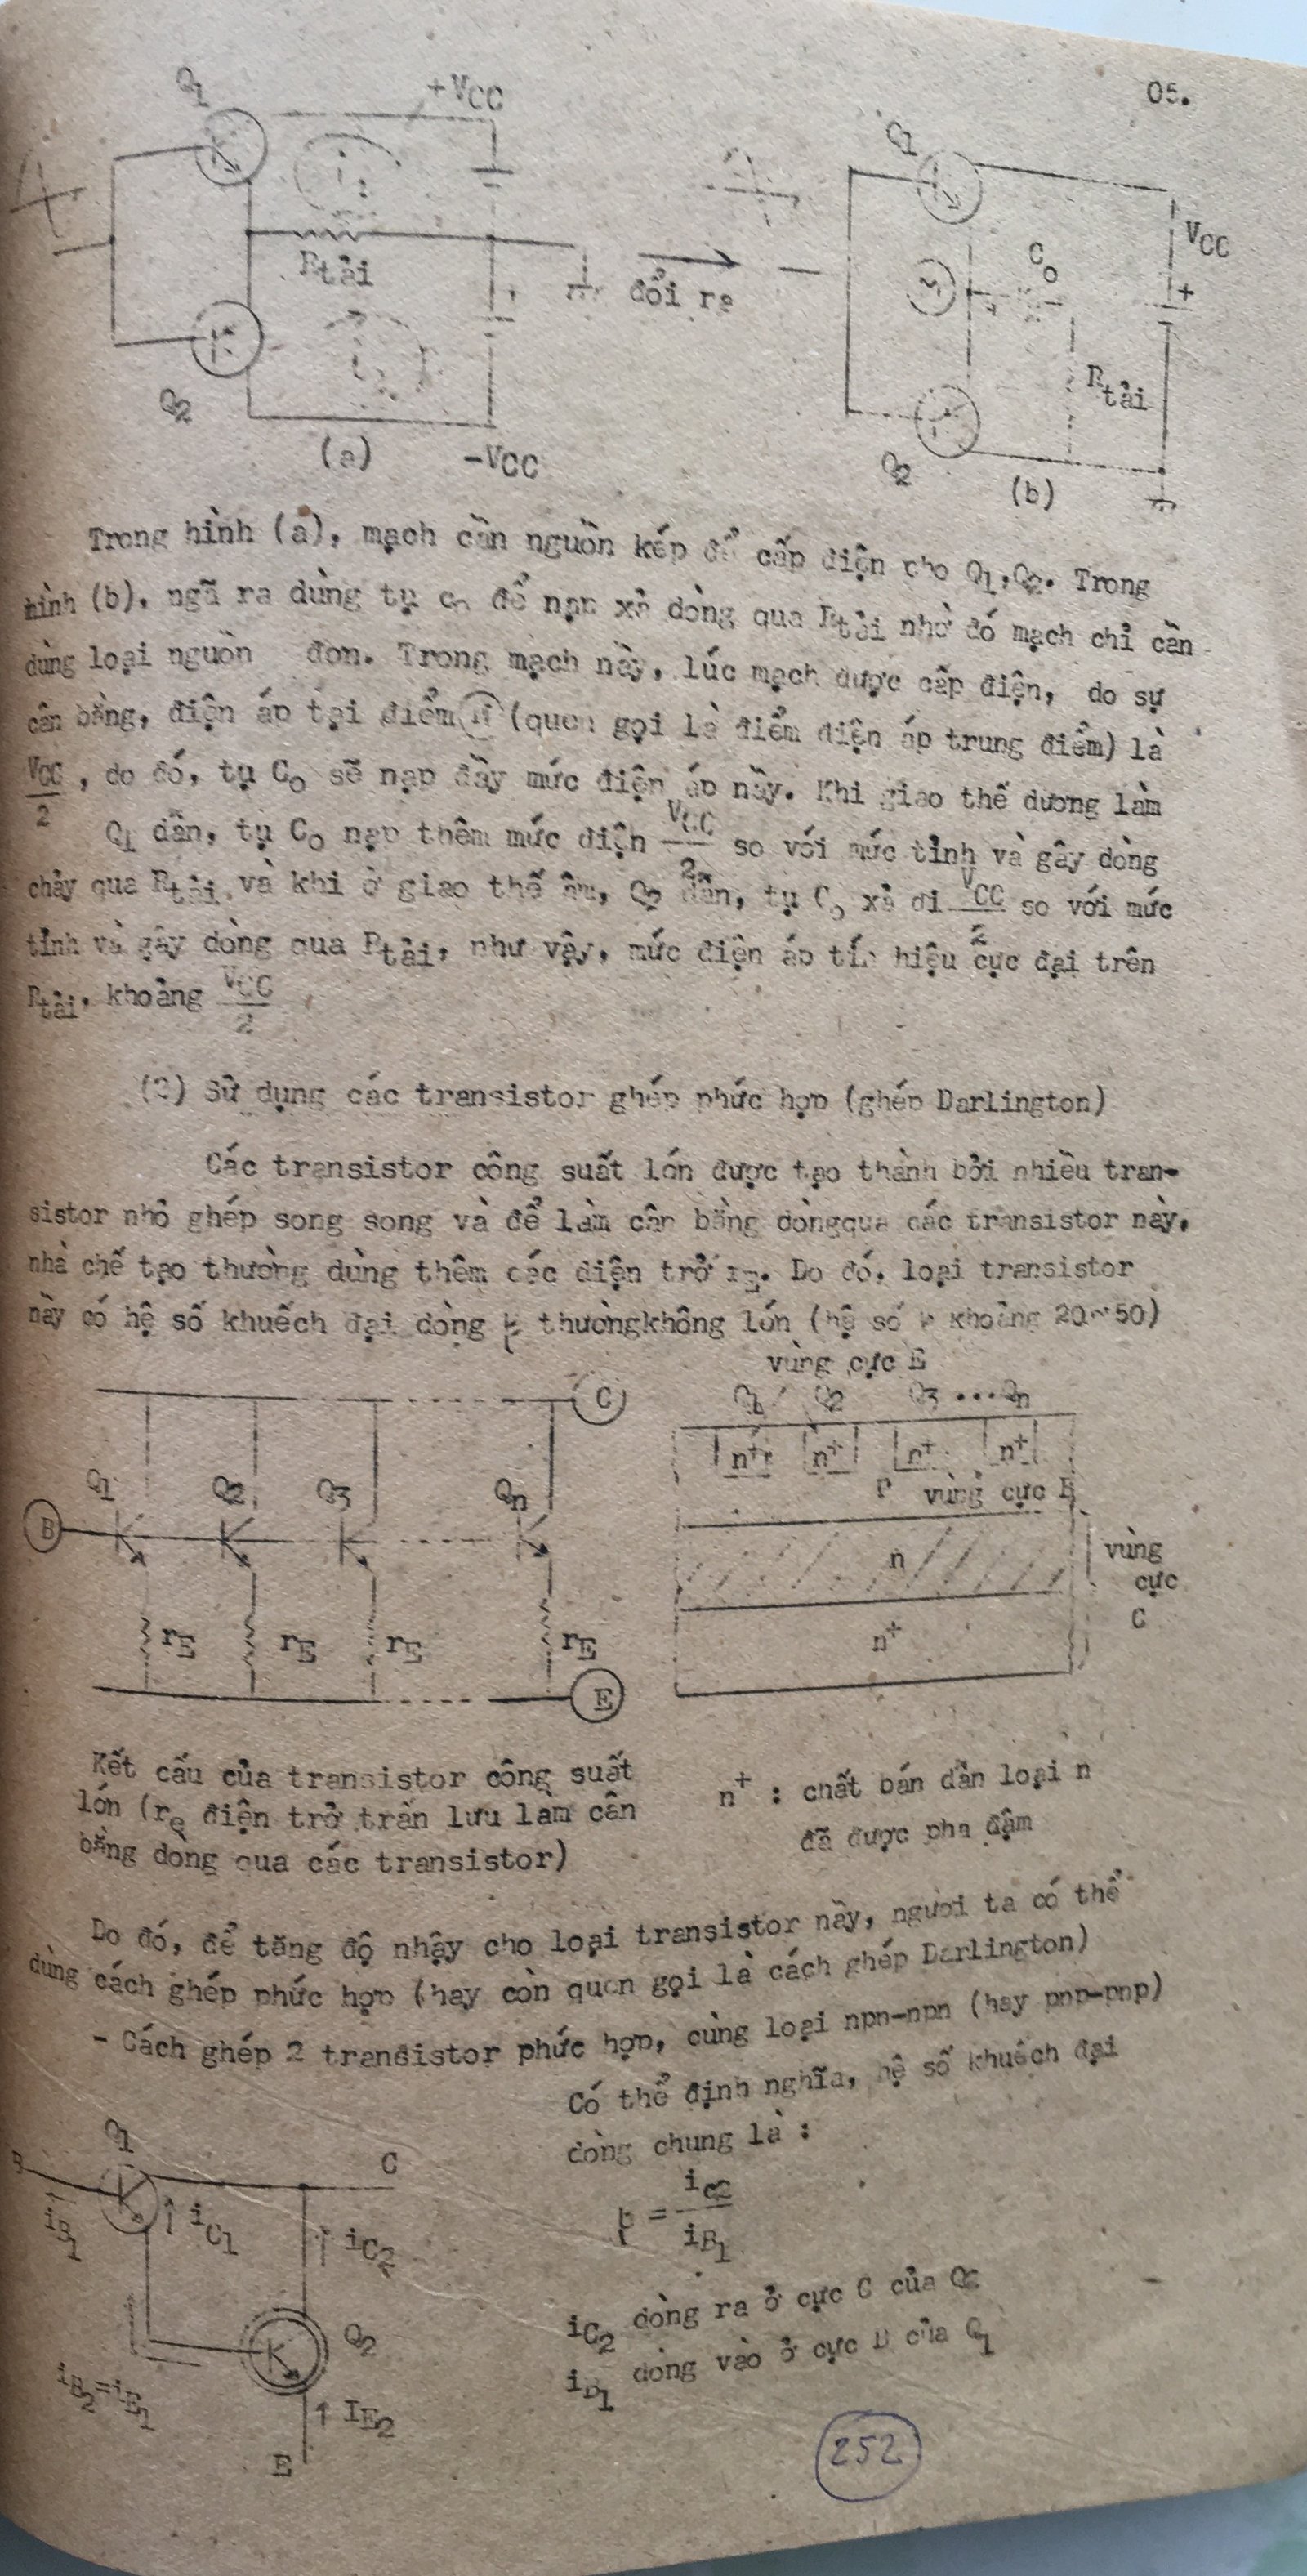 05.
Q1 +VCC
Rtải
đổi ra
Q2
(a) -VCC
Q1
VCC
Co
+
M
Rtải
Q2
(b)
Trong hình (a), mạch cần nguồn kép để cấp điện cho Q1,Q2. Trong
hình (b), ngã ra dùng tụ Co để nạp xả dòng qua Rtải nhờ đó mạch chỉ cần
dùng loại nguồn đơn. Trong mạch này, lúc mạch được cấp điện, do sự
cân bằng, điện áp tại điểm M (quen gọi là điểm điện áp trung điểm) là
VCC/2, do đó, tụ Co sẽ nạp đầy mức điện áp nầy. Khi giao thế dương làm
Q1 dẫn, tụ Co nạp thêm mức điện VCC/2 so với mức tỉnh và gây dòng
chảy qua Rtải, và khi ở giao thế âm, Q2 dẫn, tụ Co xả đi VCC/2 so với mức
tỉnh và gây dòng qua Rtải, như vậy, mức điện áp tín hiệu cực đại trên
Rtải, khoảng VCC/2
(2) Sử dụng các transistor ghép phức hợp (ghép Darlington)
Các transistor công suất lớn được tạo thành bởi nhiều tran-
sistor nhỏ ghép song song và để làm cân bằng dòngqua các transistor này,
nhà chế tạo thường dùng thêm các điện trở rE. Do đó, loại transistor
nầy có hệ số khuếch đại dòng β thườngkhông lớn (hệ số β khoảng 20~50)
vùng cực E
C
Q1 Q2 Q3 ...Qn
n+ n+ n+ n+
Q1 Q2 Q3 Qn
P vùng cực B
B
n
vùng
cực
C
rE rE rE rE
n+
E
Kết cấu của transistor công suất
lớn (re điện trở trấn lưu làm cân
bằng dòng qua các transistor)
n+ : chất bán dẫn loại n
đã được pha đậm
Do đó, để tăng độ nhậy cho loại transistor nầy, người ta có thể
dùng cách ghép phức hợp (hay còn quen gọi là cách ghép Darlington)
- Cách ghép 2 transistor phức hợp, cùng loại npn-npn (hay pnp-pnp)
Có thể định nghĩa, hệ số khuếch đại
dòng chung là :
β = iC2/iB1
iC2 dòng ra ở cực C của Q2
iB1 dòng vào ở cực B của Q1
B Q1 C
iB1 iC1 iC2
Q2
iB2=iE1
IE2
E
252